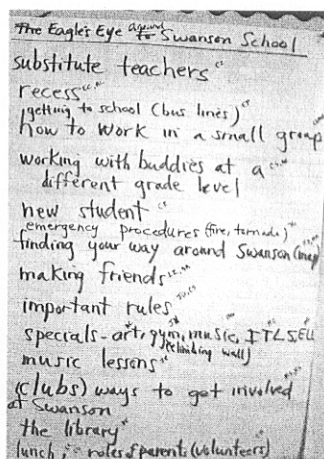 The Eagle's Eye around to Swanson School
substitute teachers
recess
getting to school (bus lines)
how to work in a small group
working with buddies at a
different grade level
new student
emergency procedures (fire, tornado)
finding your way around Swanson (map)
making friends
important rules
specials - art, gym, music, ITL, SEU
(climbing wall)
music lessons
(clubs) ways to get involved
at Swanson
the library
lunch, roles of parents (volunteers)